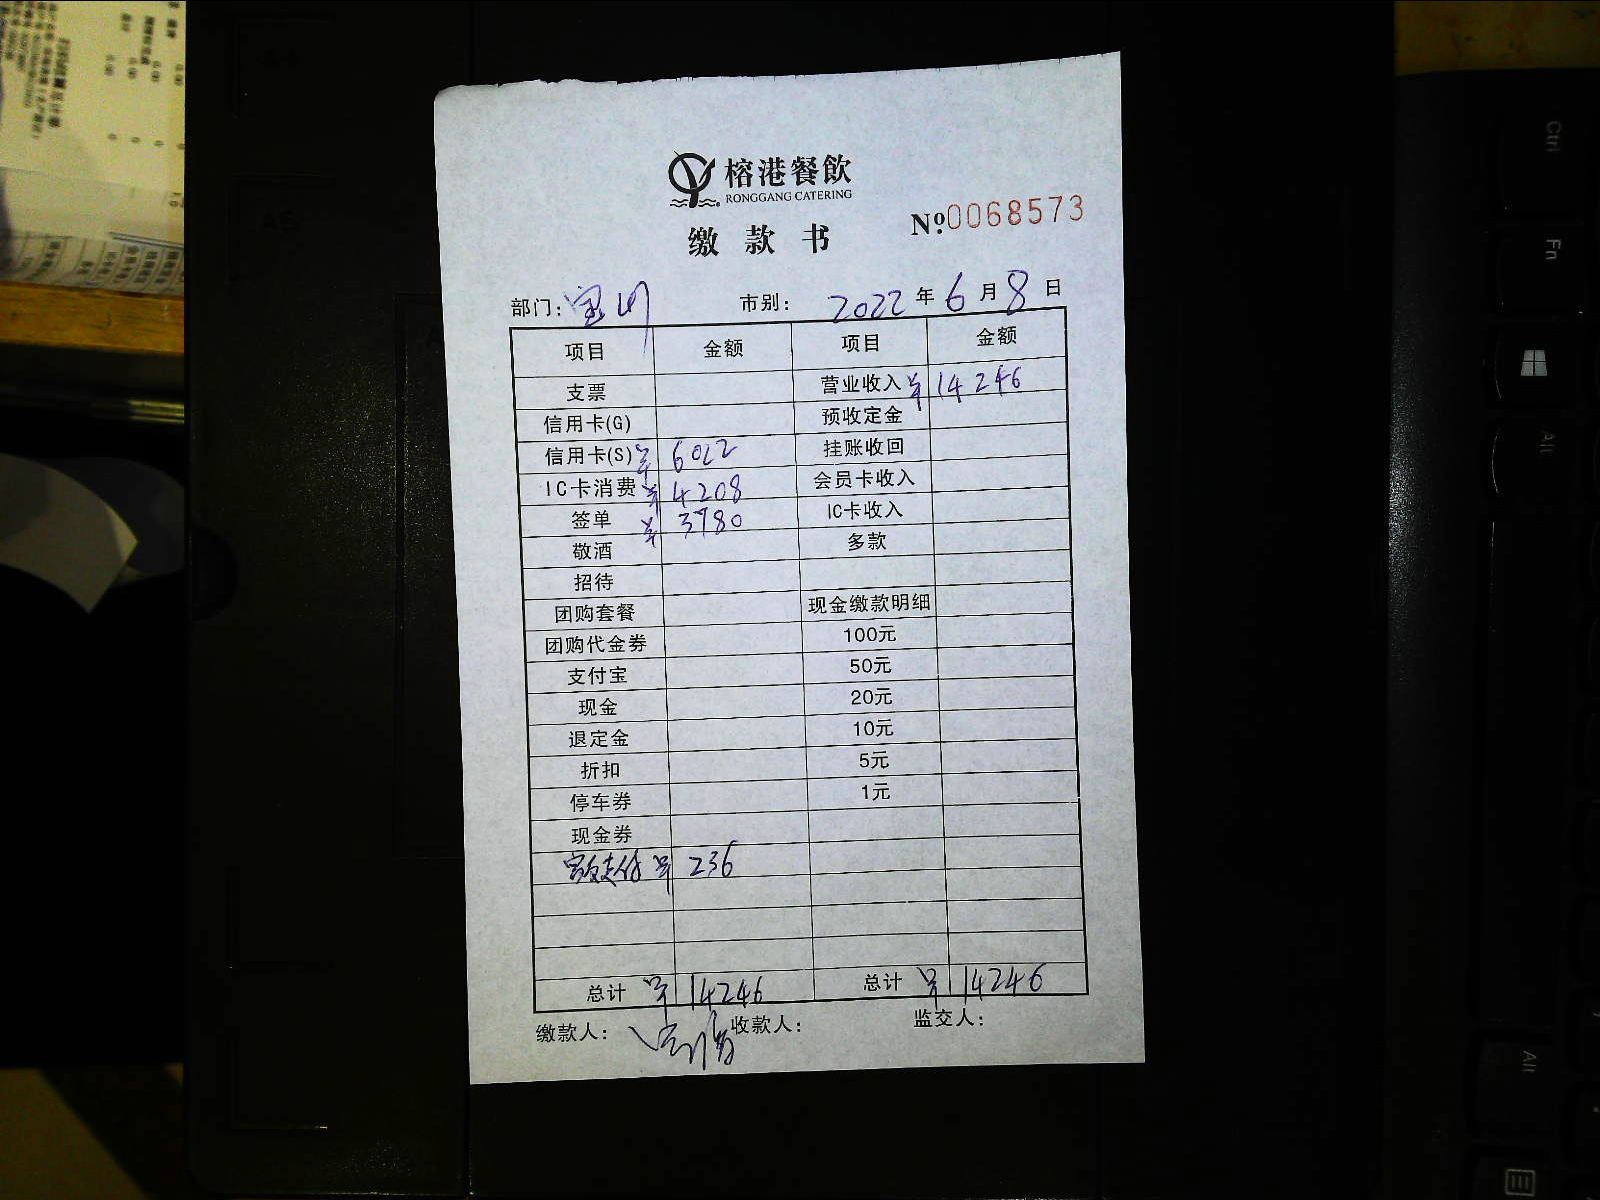 榕港餐飲
RONGGANG CATERING
缴款书
№:0068573
部门: 市别: 2022年6月8日
项目 金额 项目 金额
支票 营业收入 ¥14246
信用卡(G) 预收定金
信用卡(S) ¥6022 挂账收回
IC卡消费 ¥4208 会员卡收入
签单 ¥3780 IC卡收入
敬酒 多款
招待
团购套餐 现金缴款明细
团购代金券 100元
支付宝 50元
现金 20元
退定金 10元
折扣 5元
停车券 1元
现金券
支付 ¥236
总计 ¥14246 总计 ¥14246
缴款人: 收款人: 监交人:
Ctrl
Fn
Alt
Alt
A5